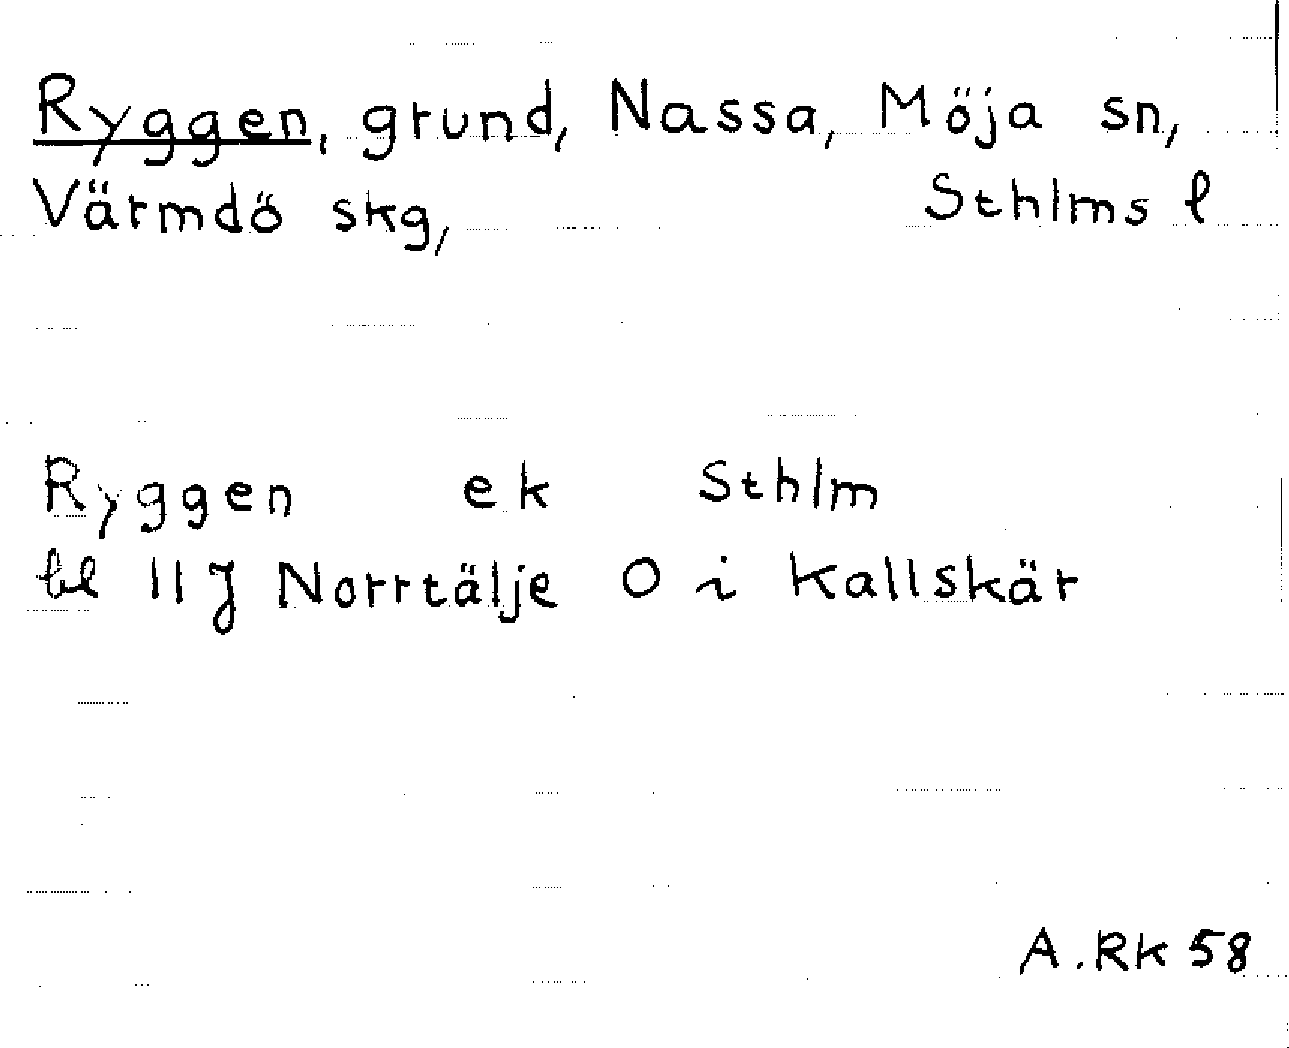 Ryggen, grund, Nassa, Möja sn,
Värmdö skg, Sthlms l
Ryggen ek Sthlm
bl 11 J Norrtälje O i Kallskär
A. Rk 58